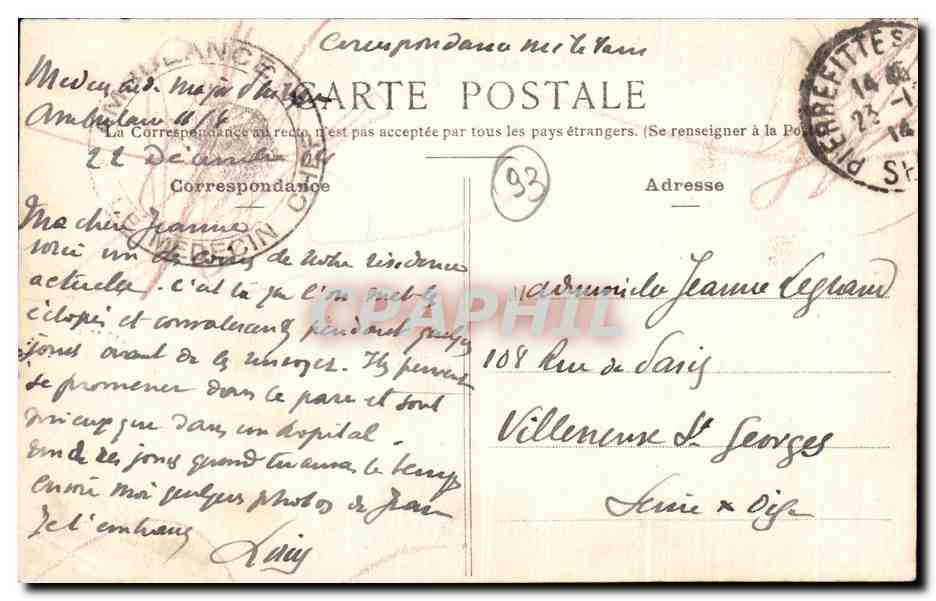 Correspondance militaire
CARTE POSTALE
La Correspondance au recto n'est pas acceptée par tous les pays étrangers. (Se renseigner à la Poste
22 Décembre
Correspondance
Adresse
93
AMBULANCE
MEDECIN CHEF
PIERREFITTES
14
23 -12
14
Ma chère Jeanne
voici un de coins de notre résidence
actuelle. C'est là que l'on met les
éclopés et convalescents pendant quelques
jours avant de les renvoyer. Ils peuvent
se promener dans ce parc et sont
mieux que dans un hopital.
Un de ces jours quand tu auras le temps
envoie moi quelques photos de Jean
Je t'embrasse
Louis
Mademoiselle Jeanne Legrand
108 Rue de Paris
Villeneuve St Georges
Seine & Oise
CPAPHIL